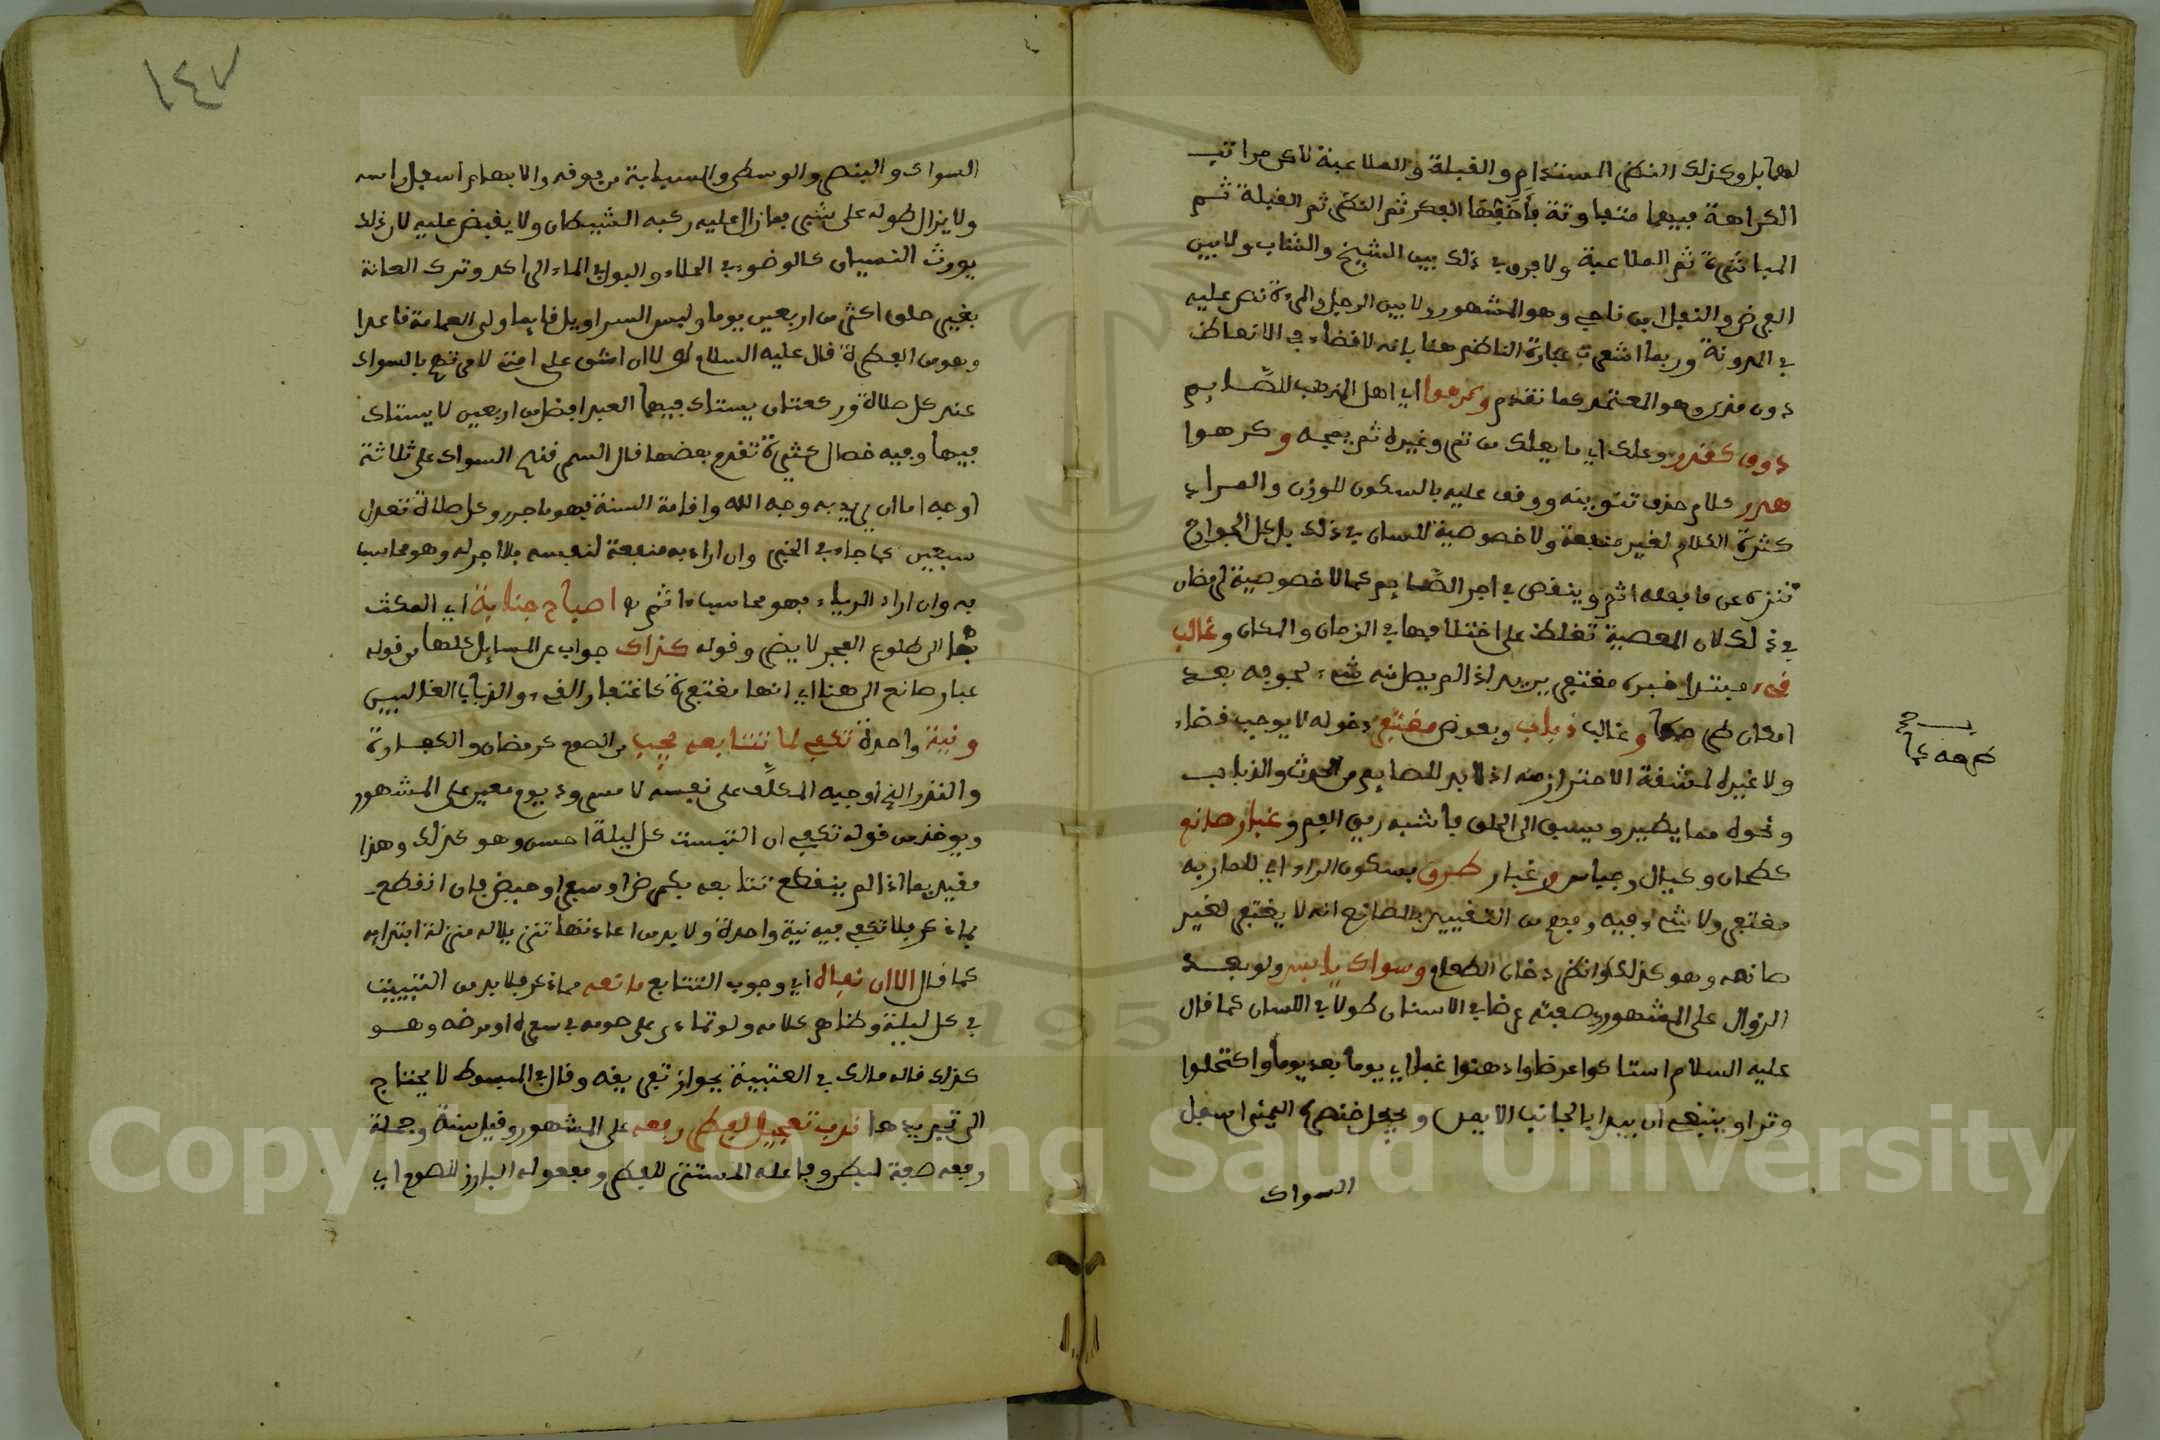 لهما بل وكذلك النظر المستدام والقبلة والملاعبة لاكن مراتب
الكراهة فيهما متفاوتة فأخفها الفكر ثم النظر ثم القبلة ثم
المباشرة ثم الملاعبة ولا فرق في ذلك بين الشيخ والشاب ولا بين
الفرض والنفل ابن ناجي وهو المشهور ولا بين الرجل والمرءة نص عليه
في المدونة وربما اشعرت عبارة الناظم هنا بانه لا قضاء في الانعاظ
دون مذي وهو المعتمد كما تقدم وكرهوا اي اهل المذهب للصايم
ذوق كقدر وعلك اي ما يعلك من تمر وغيره ثم يمجه وكرهوا
هدر كلام حذف تنوينه ووقف عليه بالسكون للوزن والمراد
كثرة الكلام لغير منفعة ولا خصوصية للسان في ذلك بل كل الجوارح
تنزه عن ما فعله اثم وينقص في اجر الصايم كما لا خصوصية لرمضان
في ذلك لان المعصية تغلظ على اختلافها في الزمان والمكان وغالب
قيء مبتدا خبره مغتفر يريد اذا لم يصل منه شيء لجوفه بعد
امكان طرحه وغالب ذباب وبعوض مغتفر دخوله لا يوجب قضاء
ولا غيره لمشقة الاحتراز منه اذ لا بد للصايم من الحدث والذباب
ونحوه مما يطير ويسبق الى الحلق فأشبه ريق الفم وغبار صانع
كطحان وكيال وجباس وغبار طرق بسكون الراء اي للمار به
مغتفر ولا شيء فيه وفهم من التقييد بالصانع انه لا يغتفر لغير
صانعه وهو كذلك وانظر دخان الطعام وسواك يابس ولو بعد
الزوال على المشهور وصفته عرضا في الاسنان طولا في اللسان كما قال
عليه السلام استاكوا عرضا وادهنوا غبا اي يوما بعد يوم واكتحلوا
وترا وينبغي ان يبدا بالجانب الايمن ويجعل خنصره اليمنى اسفل
السواك
طرحه
١٤٧
السواك والبنصر والوسطى والسبابة من فوقه والابهام اسفل راسه
ولا يزال طوله على شبر فما زال عليه ركبه الشيطان ولا يقبض عليه لان ذلك
يورث النسيان كالوضوء في الخلاء والبول في الماء الراكد وترك العانة
بغير حلق اكثر من اربعين يوما ولبس السراويل قايما ولي العمامة قاعدا
وهو من الفطرة قال عليه السلام لولا ان اشق على امتي لامرتهم بالسواك
عند كل صلاة وركعتان يستاك فيهما العبد افضل من اربعين لا يستاك
فيها وفيه خصال كثيرة تقدم بعضها قال السمرقندي السواك على ثلاثة
اوجه اما ان يريد به وجه الله واقامة السنة فهو ماجور وكل صلاة تعدل
سبعين كما جاء في الخبر وان اراد به منفعة لنفسه فلا اجر له وهو محاسب
به وان اراد الرياء فهو محاسب اثم به اصباح جنابة اي المكث
بها الى طلوع الفجر لا يضر وقوله كذاك جواب عن المسايل كلها من قوله
غبار صانع الى هنا اي انها مغتفرة كاغتفار القيء والذباب الغالبين
ونية واحدة تكفي لما تتابعه يجب من الصوم كرمضان والكفارة
والنذر الذي اوجبه المكلف على نفسه لا مسرود ويوم معين على المشهور
ويوخذ من قوله تكفي ان التبييت كل ليلة احسن وهو كذلك وهذا
مقيد بما اذا لم ينقطع تتابعه بكمرض او سفر او حيض فان انقطع
بما ذكر فلا تكفي فيه نية واحدة ولا بد من اعادتها تنزيلا له منزلة ابتدايه
كما قال الا ان نفاه اي وجوب التتابع مانعه مما ذكر فلا بد من التبييت
في كل ليلة وظاهر كلامه ولو تمادى على صومه في سفره او مرضه وهو
كذلك قاله مالك في العتبية بجواز تفريقه وقال في المبسوط لا يحتاج
الى تجديدها ندب تعجيل لفطر رفعه على المشهور وقيل سنة وجملة
رفعه صفة لفطر وفاعله المستتر للفطر ومفعوله البارز للصوم اي
Copyright © King Saud University
1957